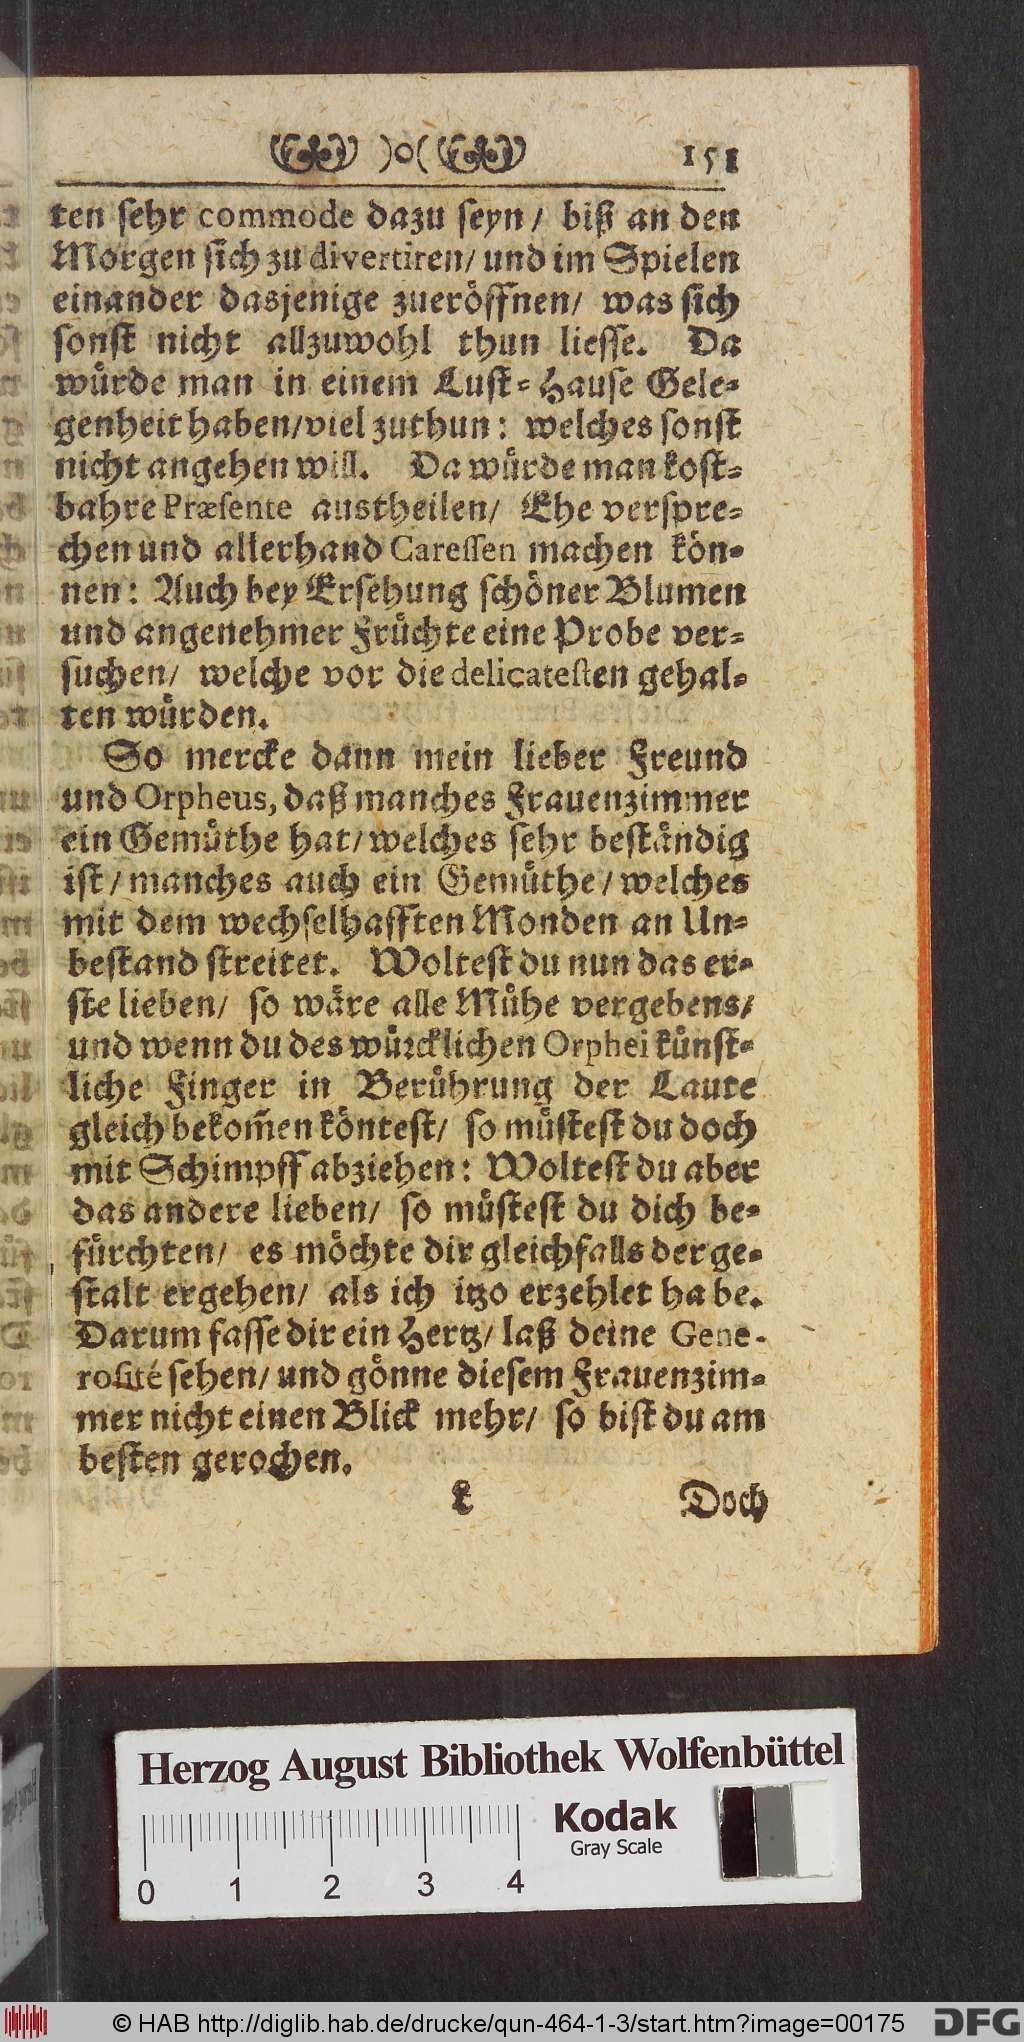 )o( 151
ten sehr commode dazu seyn/ biß an den
Morgen sich zu divertiren/ und im Spielen
einander dasjenige zueröffnen/ was sich
sonst nicht allzuwohl thun liesse. Da
würde man in einem Lust-Hause Gele-
genheit haben/viel zuthun: welches sonst
nicht angehen will. Da würde man kost-
bahre Præsente austheilen/ Ehe verspre-
chen und allerhand Caressen machen kön-
nen: Auch bey Ersehung schöner Blumen
und angenehmer Früchte eine Probe ver-
suchen/ welche vor die delicatesten gehal-
ten würden.
So mercke dann mein lieber Freund
und Orpheus, daß manches Frauenzimmer
ein Gemüthe hat/welches sehr beständig
ist/manches auch ein Gemüthe/welches
mit dem wechselhafften Monden an Un-
bestand streitet. Woltest du nun das er-
ste lieben/ so wäre alle Mühe vergebens/
und wenn du des würcklichen Orphei künst-
liche Finger in Berührung der Laute
gleich bekom̃en köntest/ so müstest du doch
mit Schimpff abziehen: Woltest du aber
das andere lieben/ so müstest du dich be-
fürchten/ es möchte dir gleichfalls derge-
stalt ergehen/ als ich itzo erzehlet habe.
Darum fasse dir ein Hertz/ laß deine Gene-
rosité sehen/ und gönne diesem Frauenzim-
mer nicht einen Blick mehr/ so bist du am
besten gerochen.
L Doch
Herzog August Bibliothek Wolfenbüttel
Kodak
Gray Scale
0 1 2 3 4
© HAB http://diglib.hab.de/drucke/qun-464-1-3/start.htm?image=00175 DFG